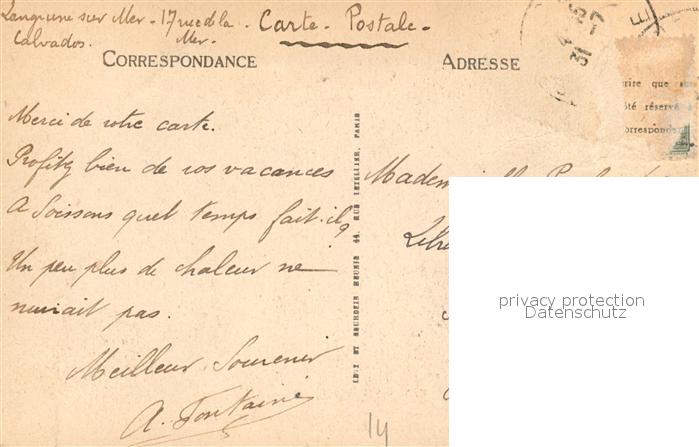 Langrune sur Mer - 17 rue de la Carte Postale
Calvados. Mer
CORRESPONDANCE
ADRESSE
Merci de votre carte.
Profitez bien de vos vacances
A Soissons quel temps fait-il?
Un peu plus de chaleur ne
nuirait pas.
Meilleur Souvenir
A. Fontaine
LEVY ET NEURDEIN REUNIS 44, RUE LETELLIER, PARIS
31 -7
rire que
ôté réservé
orrespondan
Mademoiselle
privacy protection
Datenschutz
14